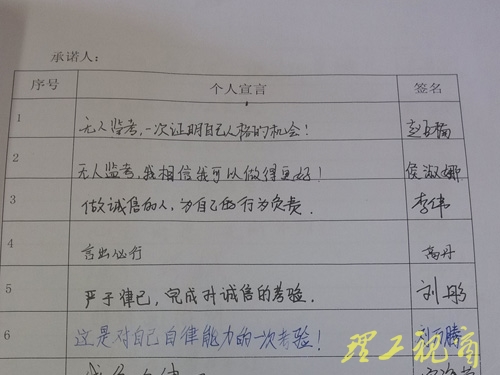 承诺人：
序号 个人宣言 签名
1 无人监考，一次证明自己人格的机会！
2 无人监考，我相信我可以做得更好！ 侯淑娜
3 做诚信的人，为自己的行为负责. 李伟
4 言出必行 高丹
5 严于律己，完成对诚信的考验. 刘彤
6 这是对自己自律能力的一次考验！
理工视窗